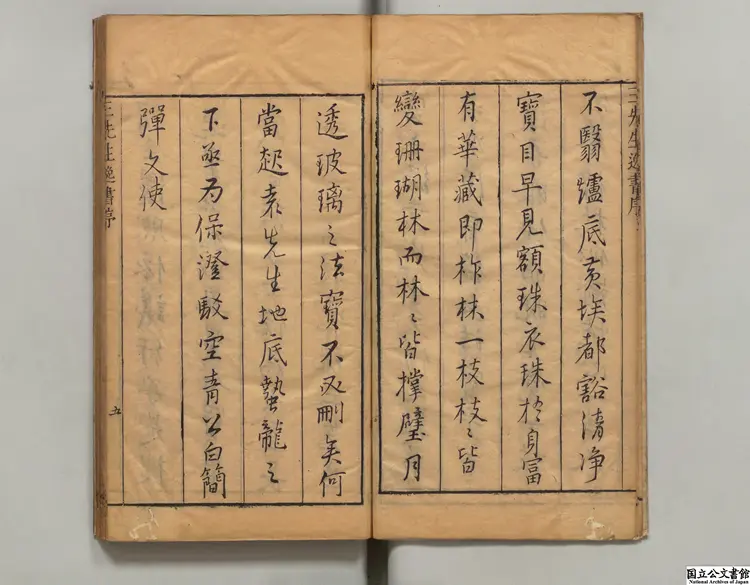 不翳爐底黃埃都豁清净
寶目早見額珠衣珠於自富
有華藏即柞林一枝枝〻皆
變珊瑚林而林〻皆撐璧月
透玻璃之法寶不再刪矣何
當起袁先生地底蟄龍之
下亟为保澄駁空青公白簡
彈文使
三先生逸書序
五
国立公文書館
National Archives of Japan